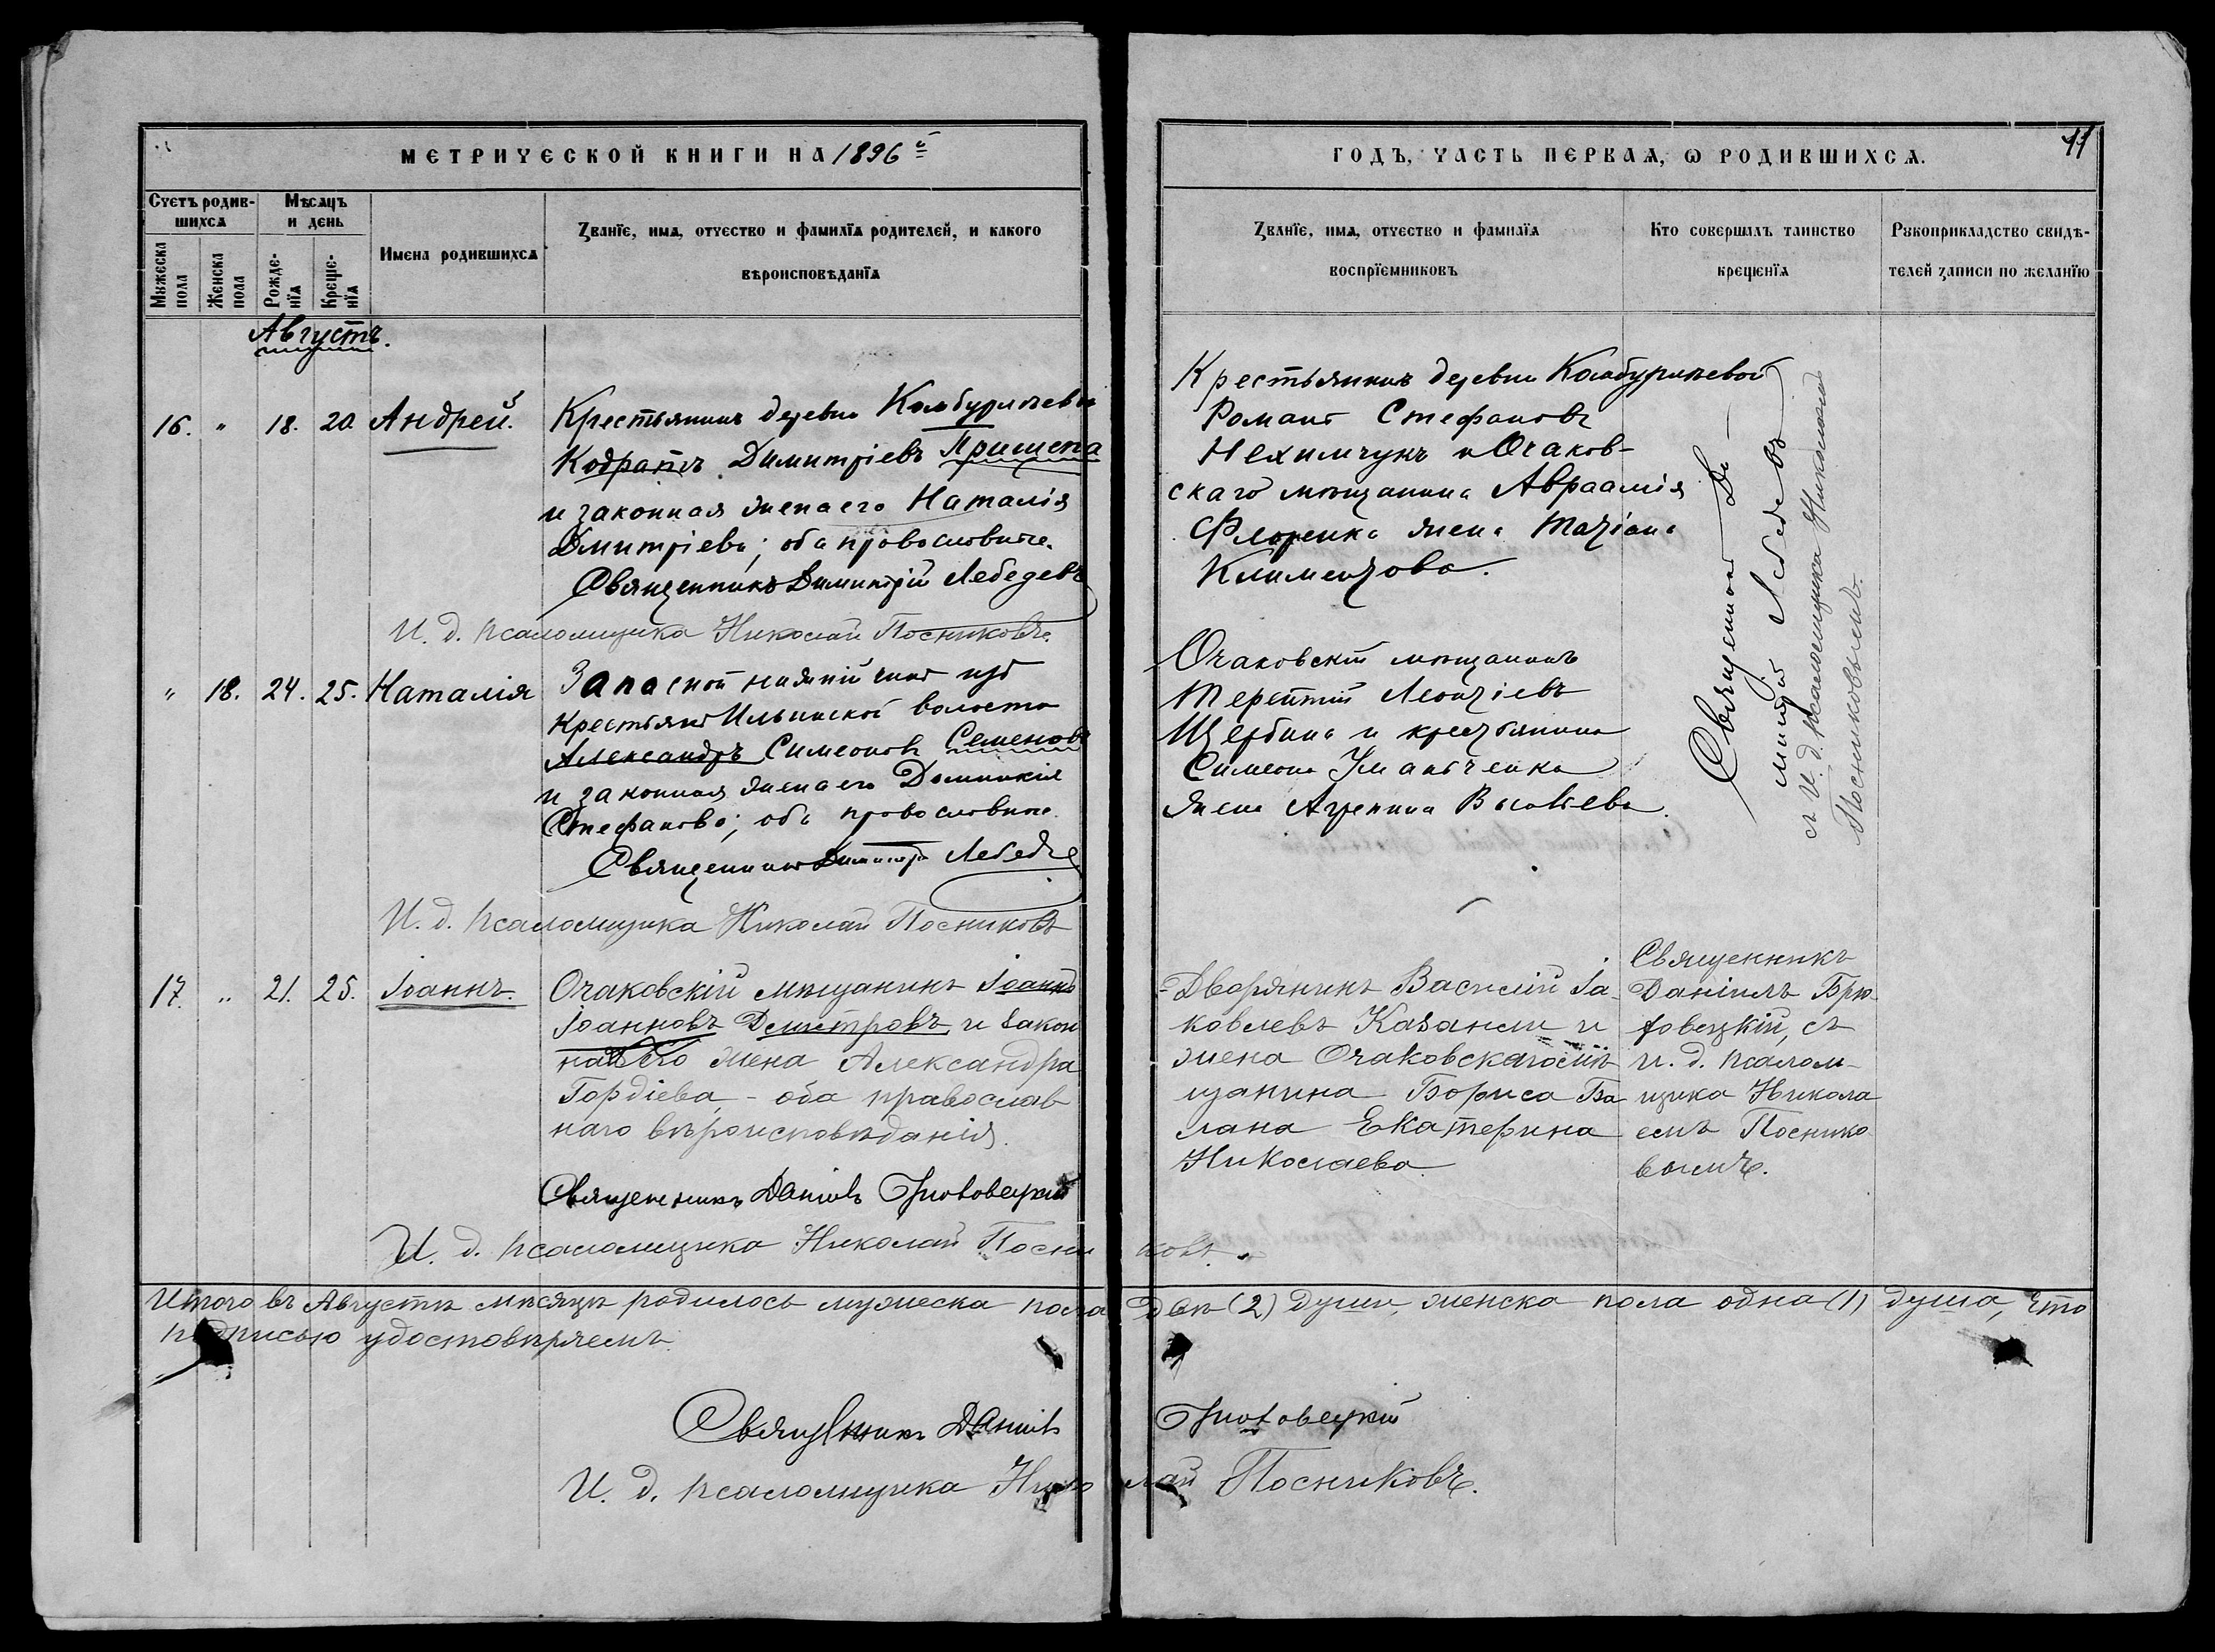 МЕТРИЧЕСКОЙ КНИГИ НА 1896й
ГОДЪ, ЧАСТЬ ПЕРВАЯ, Ѡ РОДИВШИХСЯ.
11
Счетъ родив-
шихся
Мѣсяцъ
и день
Имена родившихся
Званїе, имя, отчество и фамилїя родителей, и какого
вѣроисповѣданїя
Мужеска
пола
Женска
пола
Рожде-
нїя
Креще-
нїя
Званїе, имя, отчество и фамилїя
воспрїемниковъ
Кто совершалъ таинство
крещенїя
Рукоприкладство свидѣ-
телей записи по желанїю
Августъ.
16. " 18. 20. Андрей.
Крестьянинъ деревни
Кодратъ Димитріевъ Пришепа
и законная жена его Наталія
Дмитріева; оба православные.
Священникъ Димитрій Лебедевъ
И. д. псаломщика Николай Посниковъ.
Крестьянинъ деревни
Романъ Стефановъ
Нехимчукъ и Очаков-
скаго мѣщанина Авраамія
Флоренка жена Татіана
Климентова.
" 18. 24. 25. Наталія
Запасной нижній чинъ изъ
крестьянъ Ильинской волости
Александръ Симеоновъ Семеновъ
и законная жена его Домникія
Стефанова; оба православные.
Священникъ Димитрій Лебедевъ
И. д. псаломщика Николай Посниковъ
Очаковскій мѣщанинъ
Терентій Леонтіевъ
Щербина и крестьянина
Симеона Уманченка
жена Агрепина Васильева.
Священникъ Ди-
митрій Лебедевъ
съ И. д. псаломщика Николаемъ
Посниковымъ.
17. " 21. 25. Іоаннъ.
Очаковскій мѣщанинъ Іоаннъ
Іоанновъ Демитровъ и закон
ная его жена Александра
Гордіева, - оба православ
наго вѣроисповѣданія.
Священникъ Даніилъ Брюховецкій
И. д. псаломщика Николай Посниковъ.
Дворянинъ Василій Іа-
ковлевъ Казанли и
жена Очаковскаго мѣ
щанина Бориса Ба
лана Екатерина
Николаева.
Священникъ
Даніилъ Брю-
ховецкій, съ
и. д. псалом-
щика Никола
емъ Поснико
вымъ.
Итого въ Августѣ мѣсяцѣ родилось мужеска пола двѣ (2) души, женска пола одна (1) душа, что
подписью удостовѣряемъ.
Священникъ Даніилъ Брюховецкій
И. д. псаломщика Николай Посниковъ.